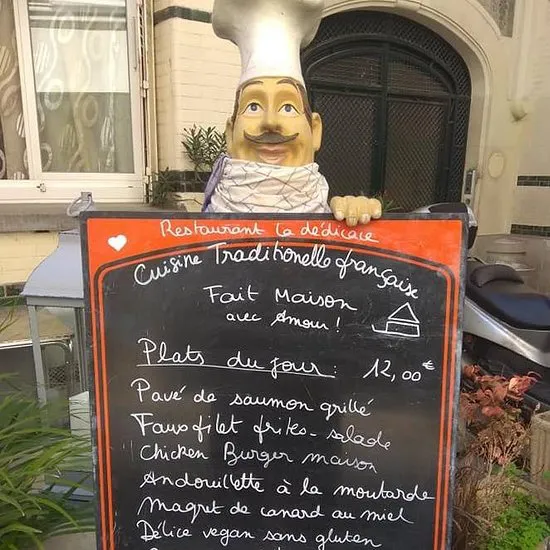 Restaurant la dédicace
Cuisine Traditionelle française
Fait Maison
avec Amour !
Plats du jour : 12,00€
Pavé de saumon grillé
Faux filet frites - salade
Chicken Burger maison
Andouillette à la moutarde
Magret de canard au miel
Délice vegan sans gluten